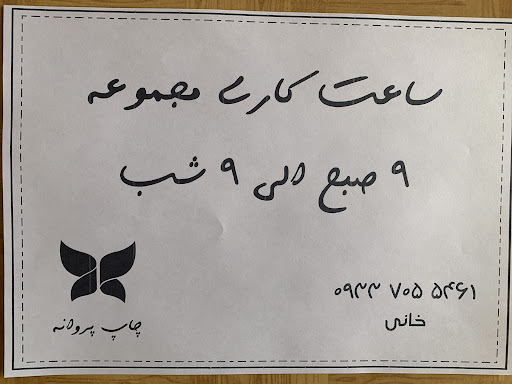 ساعت کاری مجموعه
۹ صبح الی ۹ شب
۰۹۳۳ ۷۰۵ ۵۴۶۱
خانی
چاپ پروانه